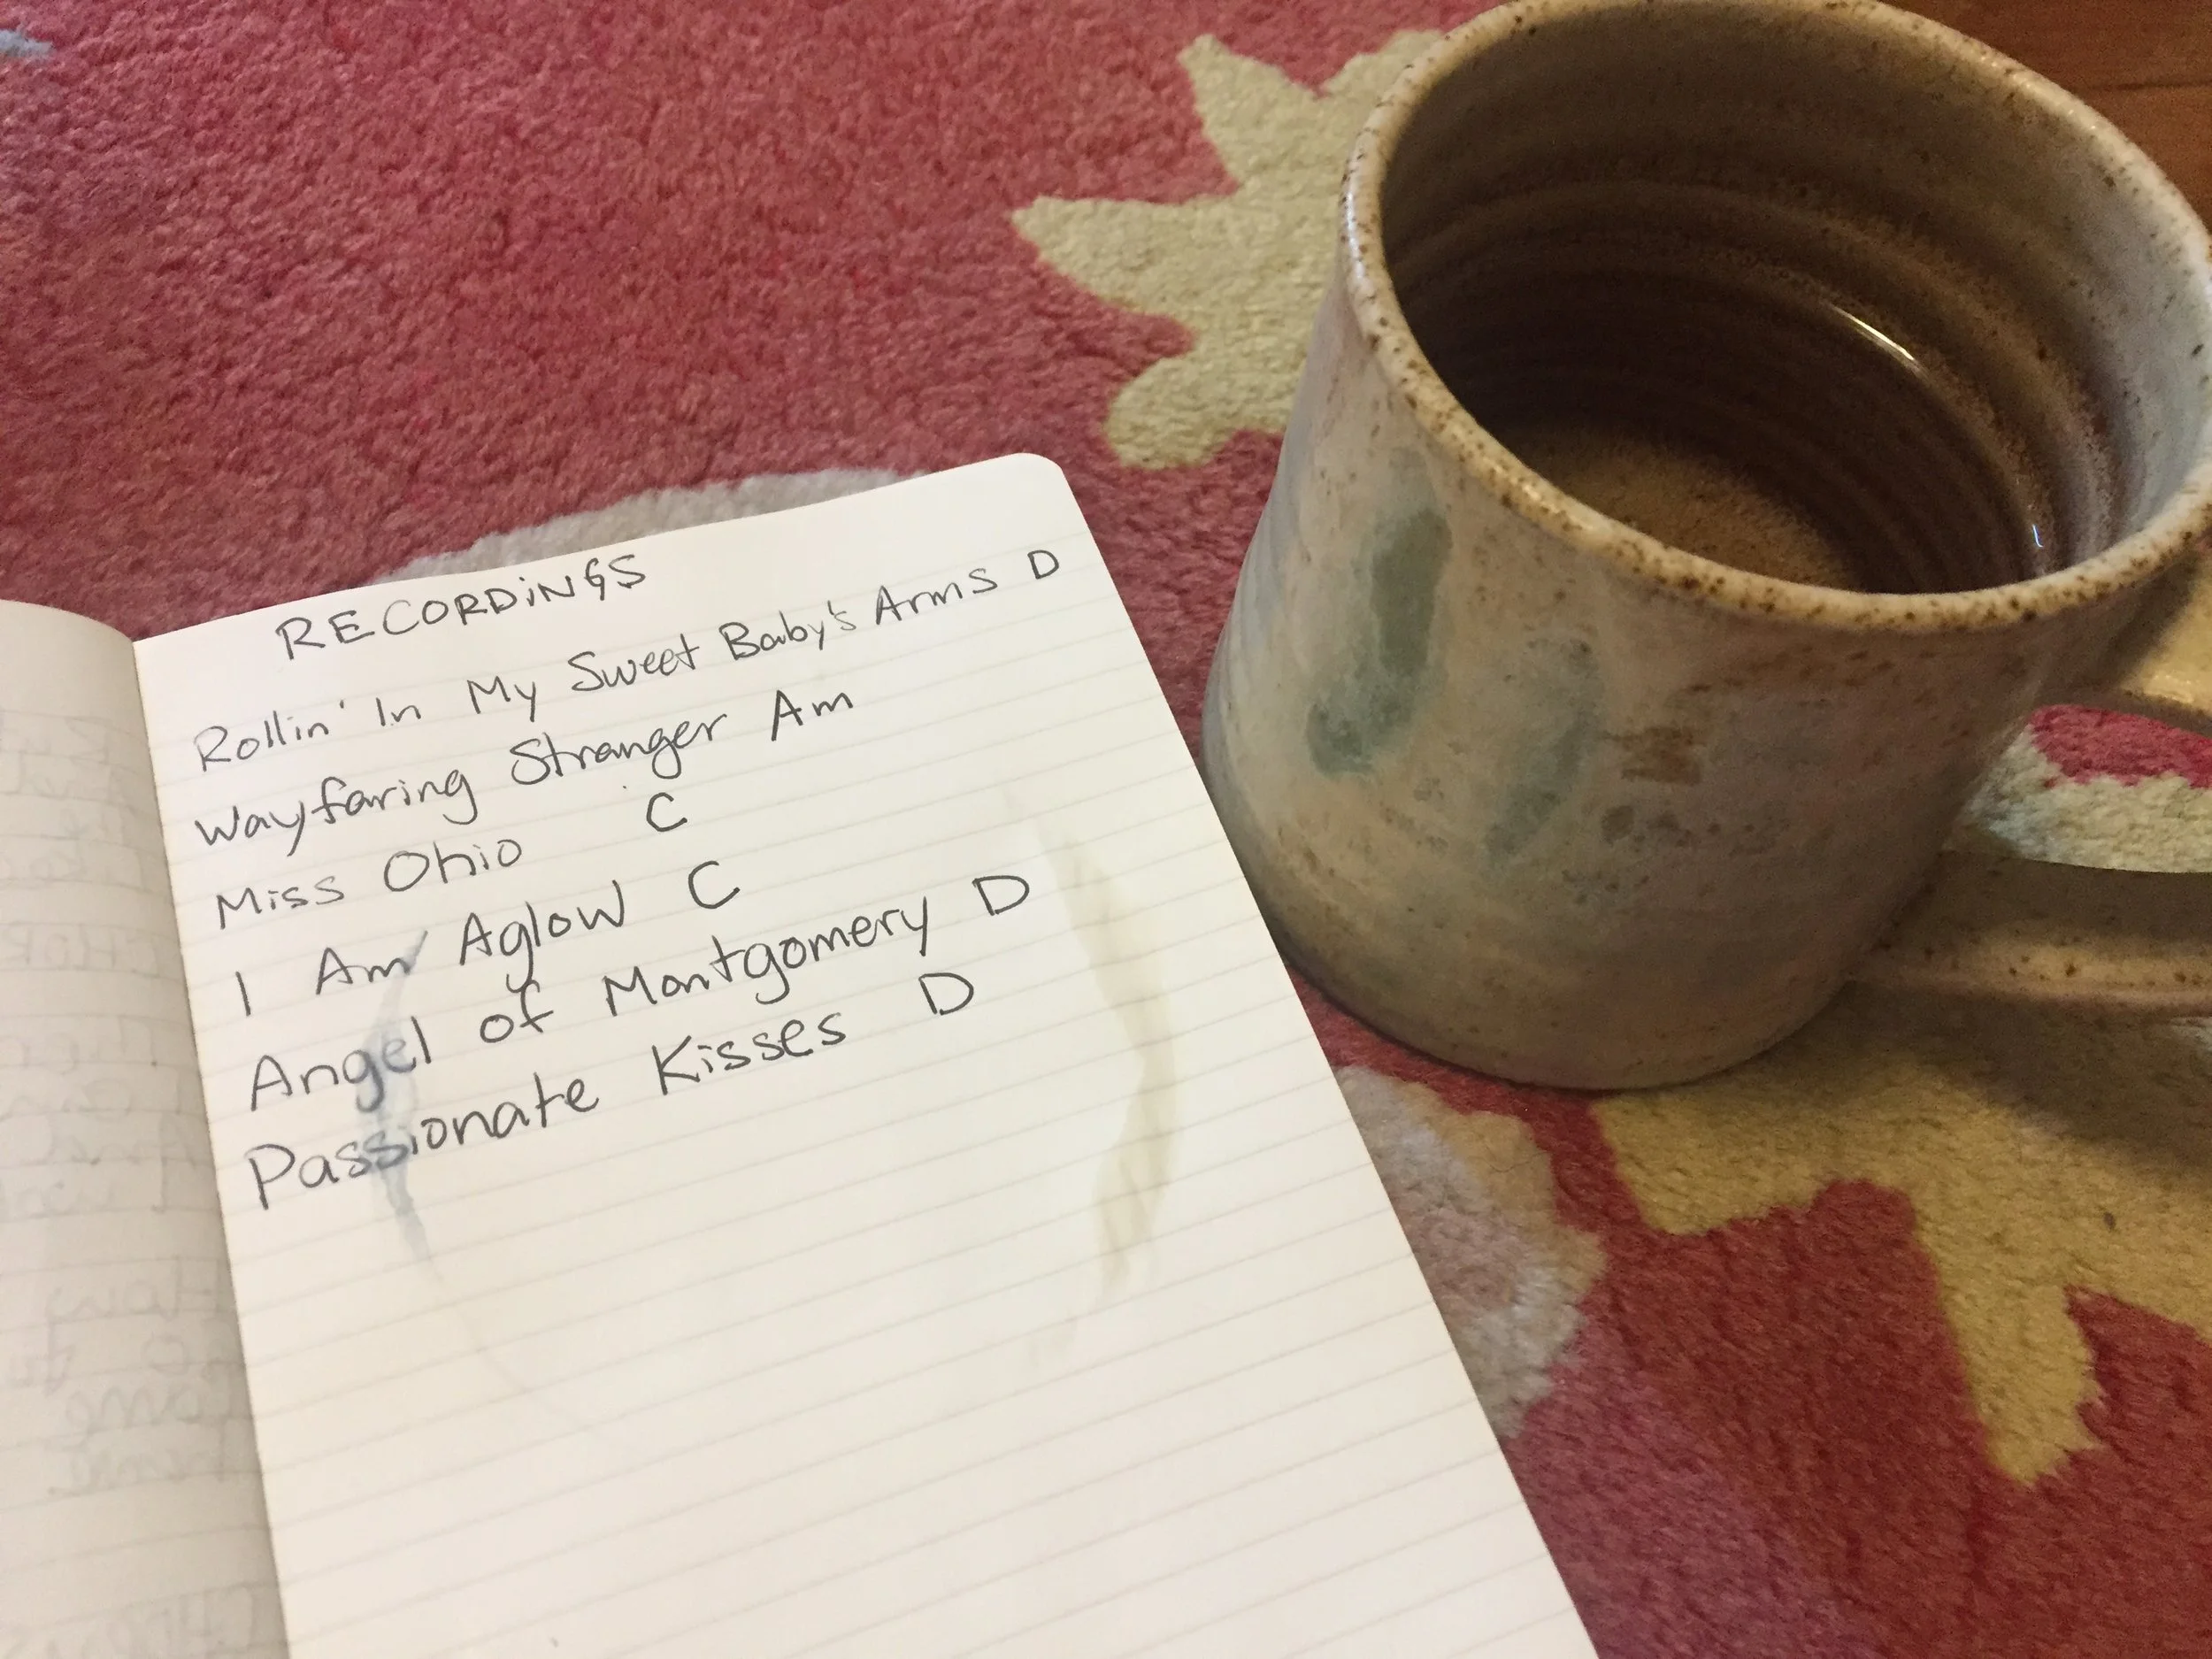 RECORDINGS
Rollin' In My Sweet Baby's Arms D
Wayfaring Stranger Am
Miss Ohio C
I Am Aglow C
Angel of Montgomery D
Passionate Kisses D